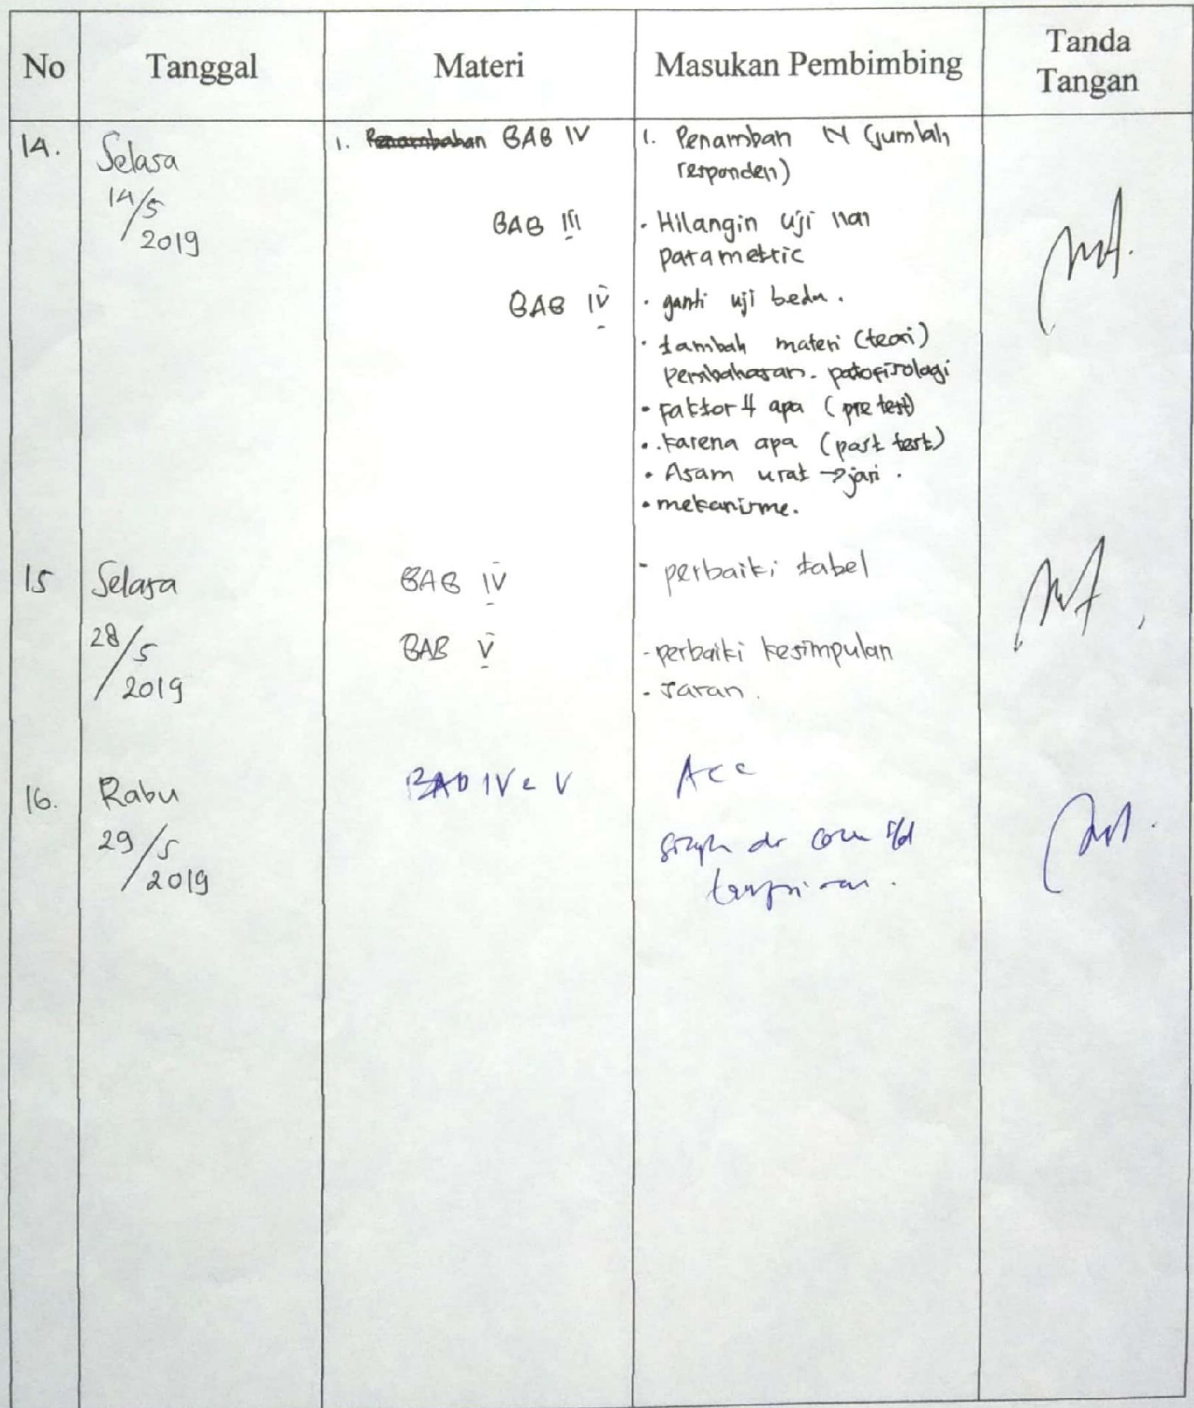 No Tanggal Materi Masukan Pembimbing Tanda Tangan
14.
Selasa
14/5
2019
1. Penambahan BAB IV
BAB III
BAB IV
1. Penamban N (jumlah
responden)
- Hilangin uji non
parametric
- ganti uji beda.
- tambah materi (teori)
pembahasan. patofisologi
- Faktor4 apa (pre test)
- karena apa (post test)
- Asam urat → jari.
- mekanisme.
15
Selasa
28/5
2019
BAB IV
BAB V
- perbaiki tabel
- perbaiki kesimpulan
- saran.
16.
Rabu
29/5
2019
BAB IV & V
Acc
s/d